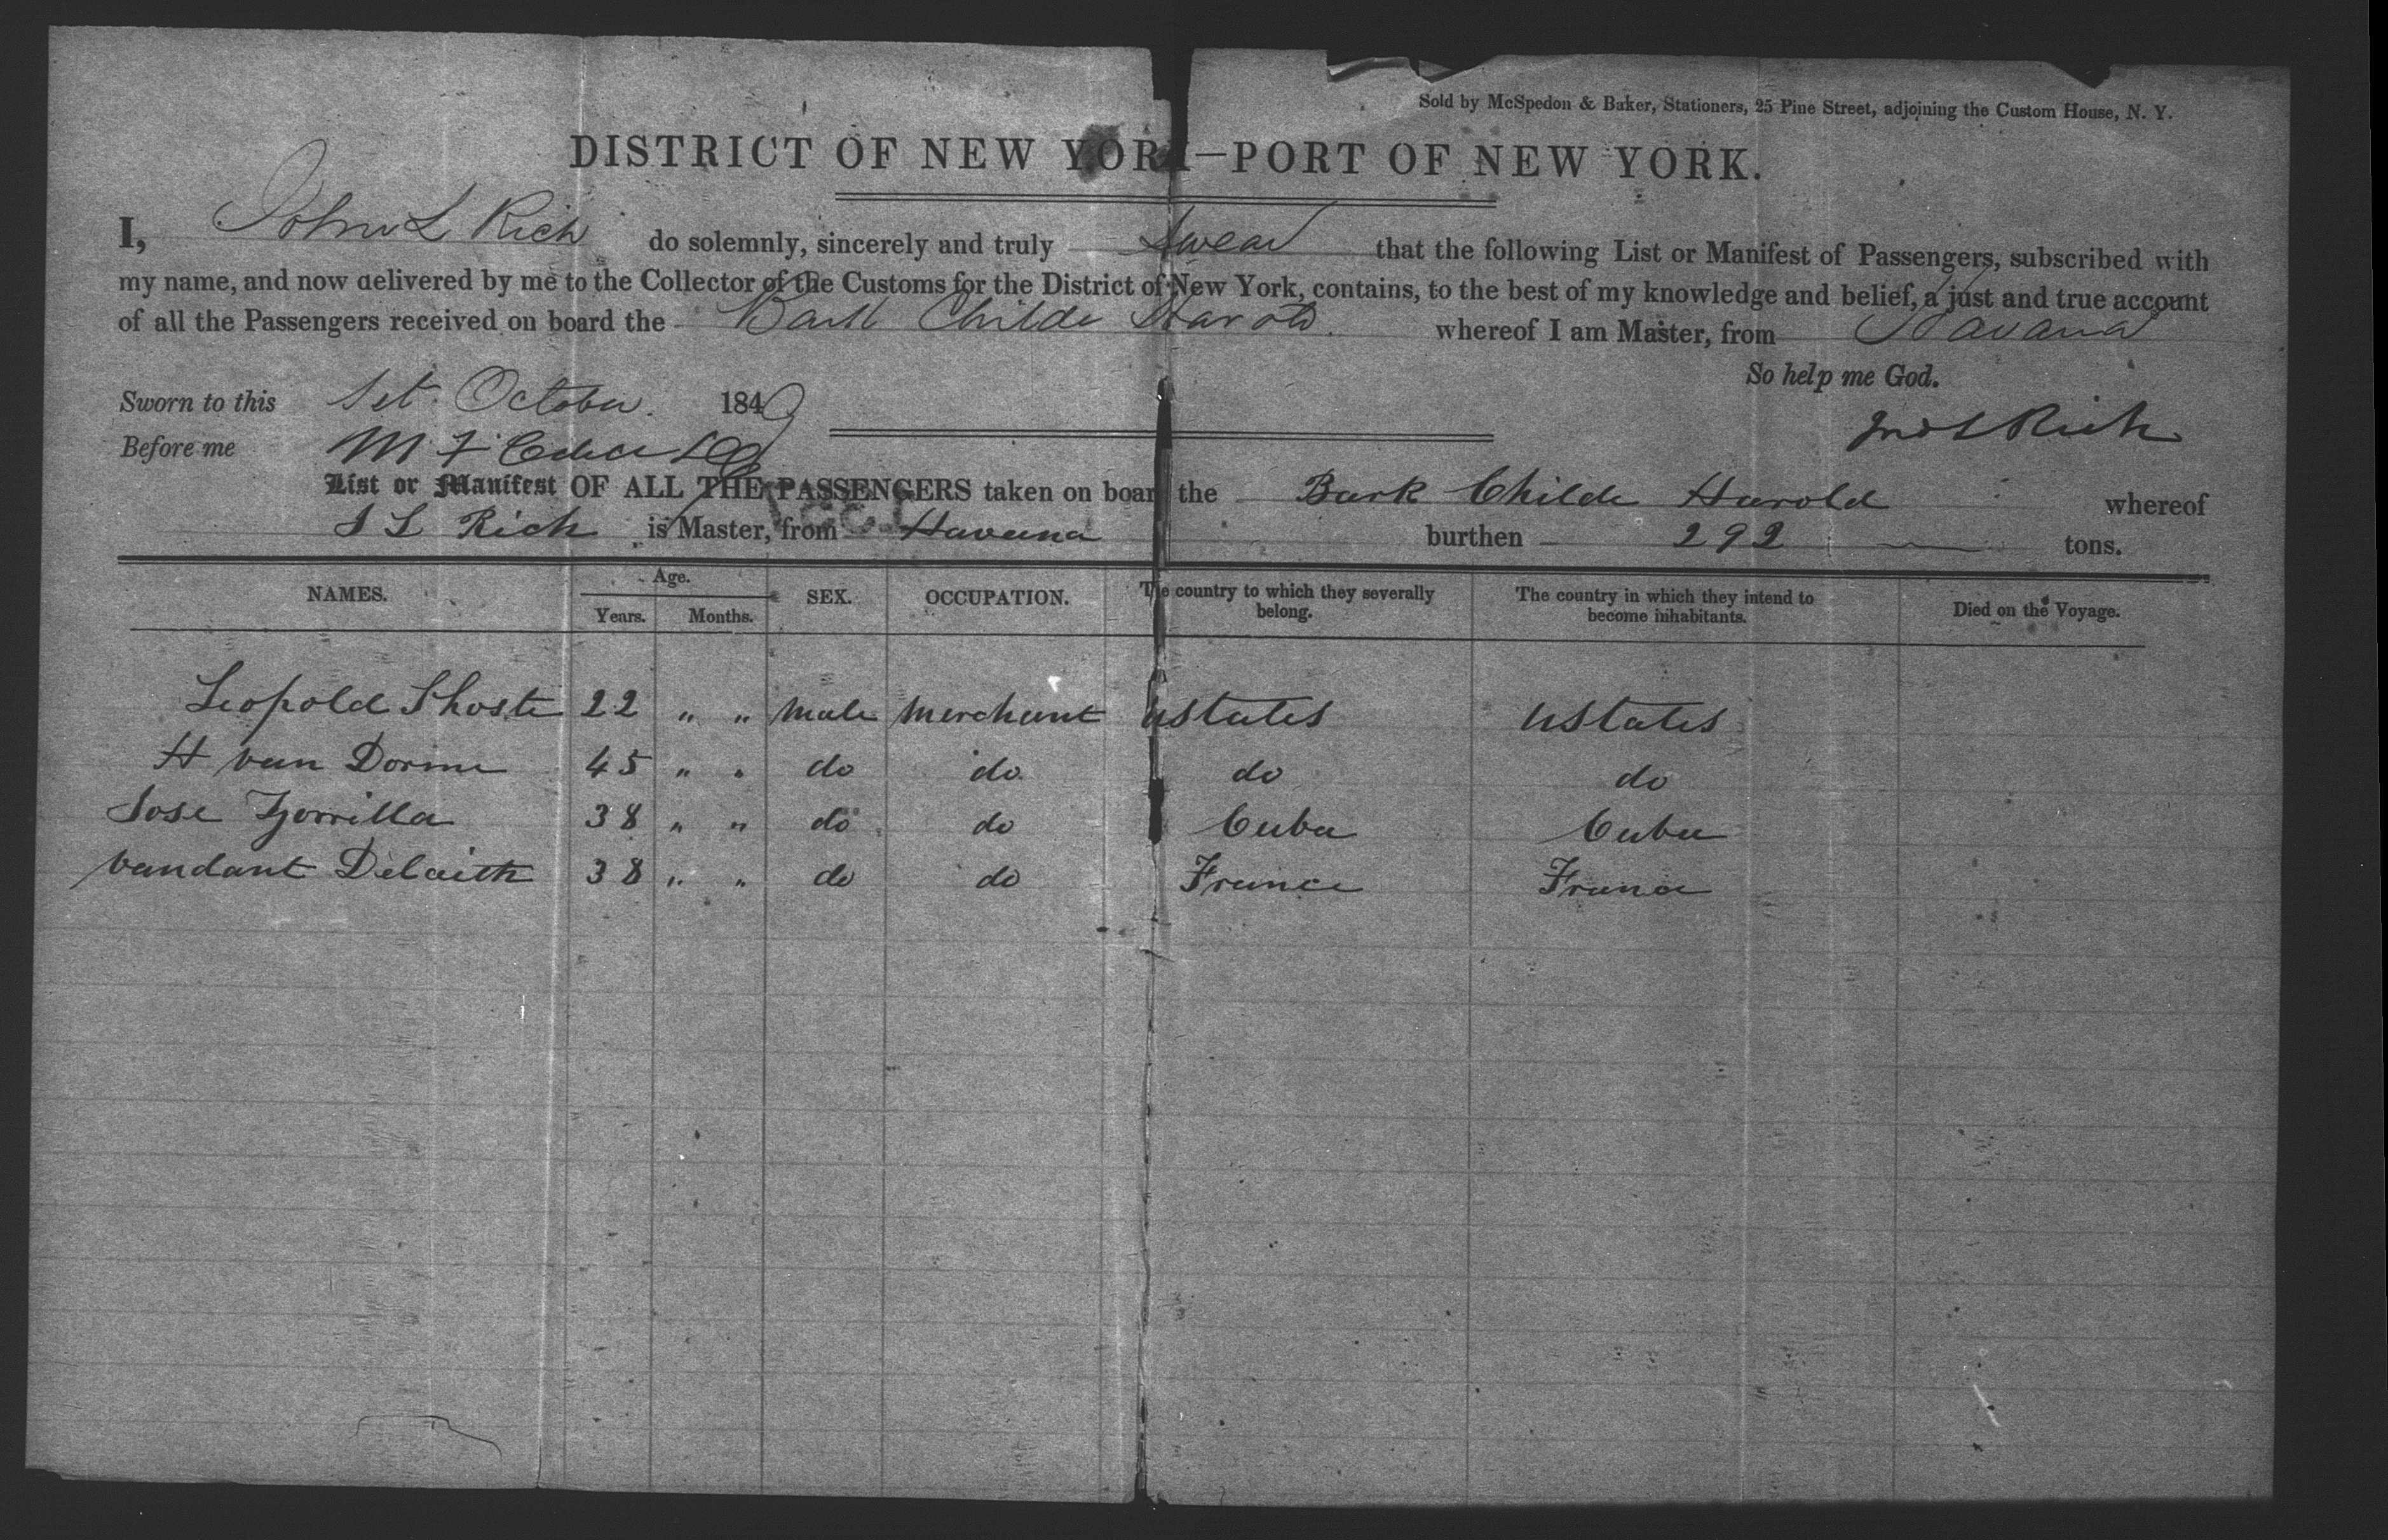 Sold by McSpedon & Baker, Stationers, 25 Pine Street, adjoining the Custom House, N. Y.
DISTRICT OF NEW YORK—PORT OF NEW YORK.
I, John L Rich do solemnly, sincerely and truly swear that the following List or Manifest of Passengers, subscribed with
my name, and now delivered by me to the Collector of the Customs for the District of New York, contains, to the best of my knowledge and belief, a just and true account
of all the Passengers received on board the Bark Childe Harold. whereof I am Master, from Havana
So help me God.
Sworn to this 1st. October. 1849
Jno L Rich
Before me M F
List or Manifest OF ALL THE PASSENGERS taken on board the Bark Childe Harold whereof
J L Rich is Master, from Havana burthen 292 tons.
NAMES. Age. Years. Months. SEX. OCCUPATION. The country to which they severally belong. The country in which they intend to become inhabitants. Died on the Voyage.
Leopold Shoste 22 " " male merchant UStates UStates
H van Dorme 45 " " do do. do do
Jose Zorrilla 38 " " do do Cuba Cuba
vandant Delaith 38 " " do do France France